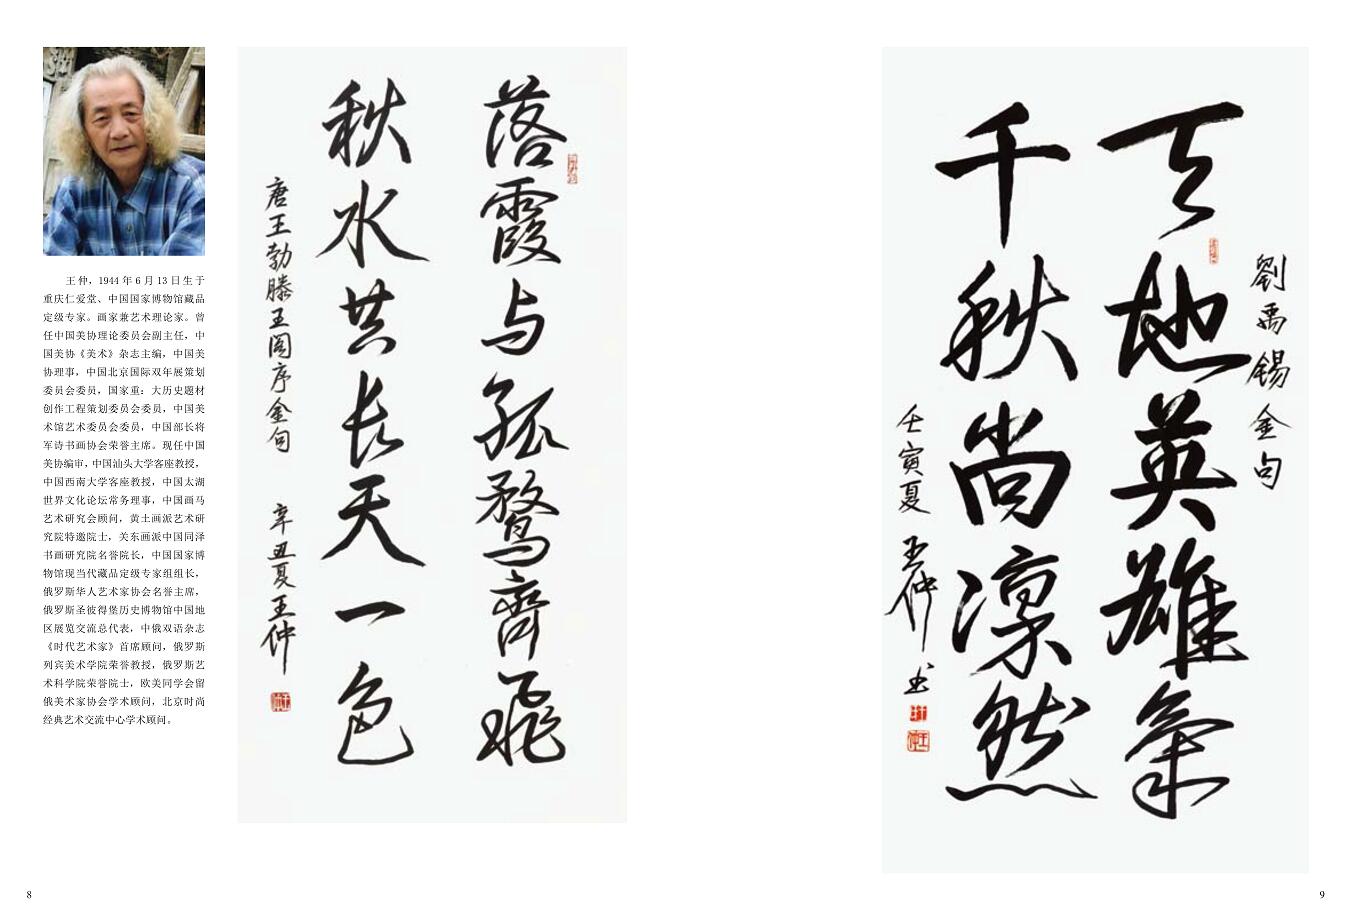 王仲，1944 年 6 月 13 日生于
重庆仁爱堂、中国国家博物馆藏品
定级专家。画家兼艺术理论家。曾
任中国美协理论委员会副主任，中
国美协《美术》杂志主编，中国美
协理事，中国北京国际双年展策划
委员会委员，国家重：大历史题材
创作工程策划委员会委员，中国美
术馆艺术委员会委员，中国部长将
军诗书画协会荣誉主席。现任中国
美协编审，中国汕头大学客座教授，
中国西南大学客座教授，中国太湖
世界文化论坛常务理事，中国画马
艺术研究会顾问，黄土画派艺术研
究院特邀院士，关东画派中国同泽
书画研究院名誉院长，中国国家博
物馆现当代藏品定级专家组组长，
俄罗斯华人艺术家协会名誉主席，
俄罗斯圣彼得堡历史博物馆中国地
区展览交流总代表，中俄双语杂志
《时代艺术家》首席顾问，俄罗斯
列宾美术学院荣誉教授，俄罗斯艺
术科学院荣誉院士，欧美同学会留
俄美术家协会学术顾问，北京时尚
经典艺术交流中心学术顾问。
落霞与孤鹜齊飛
秋水共长天一色
唐王勃滕王阁序金句 辛丑夏王仲
8
劉禹锡金句
天地英雄氣
千秋尚凛然
壬寅夏 王仲书
9